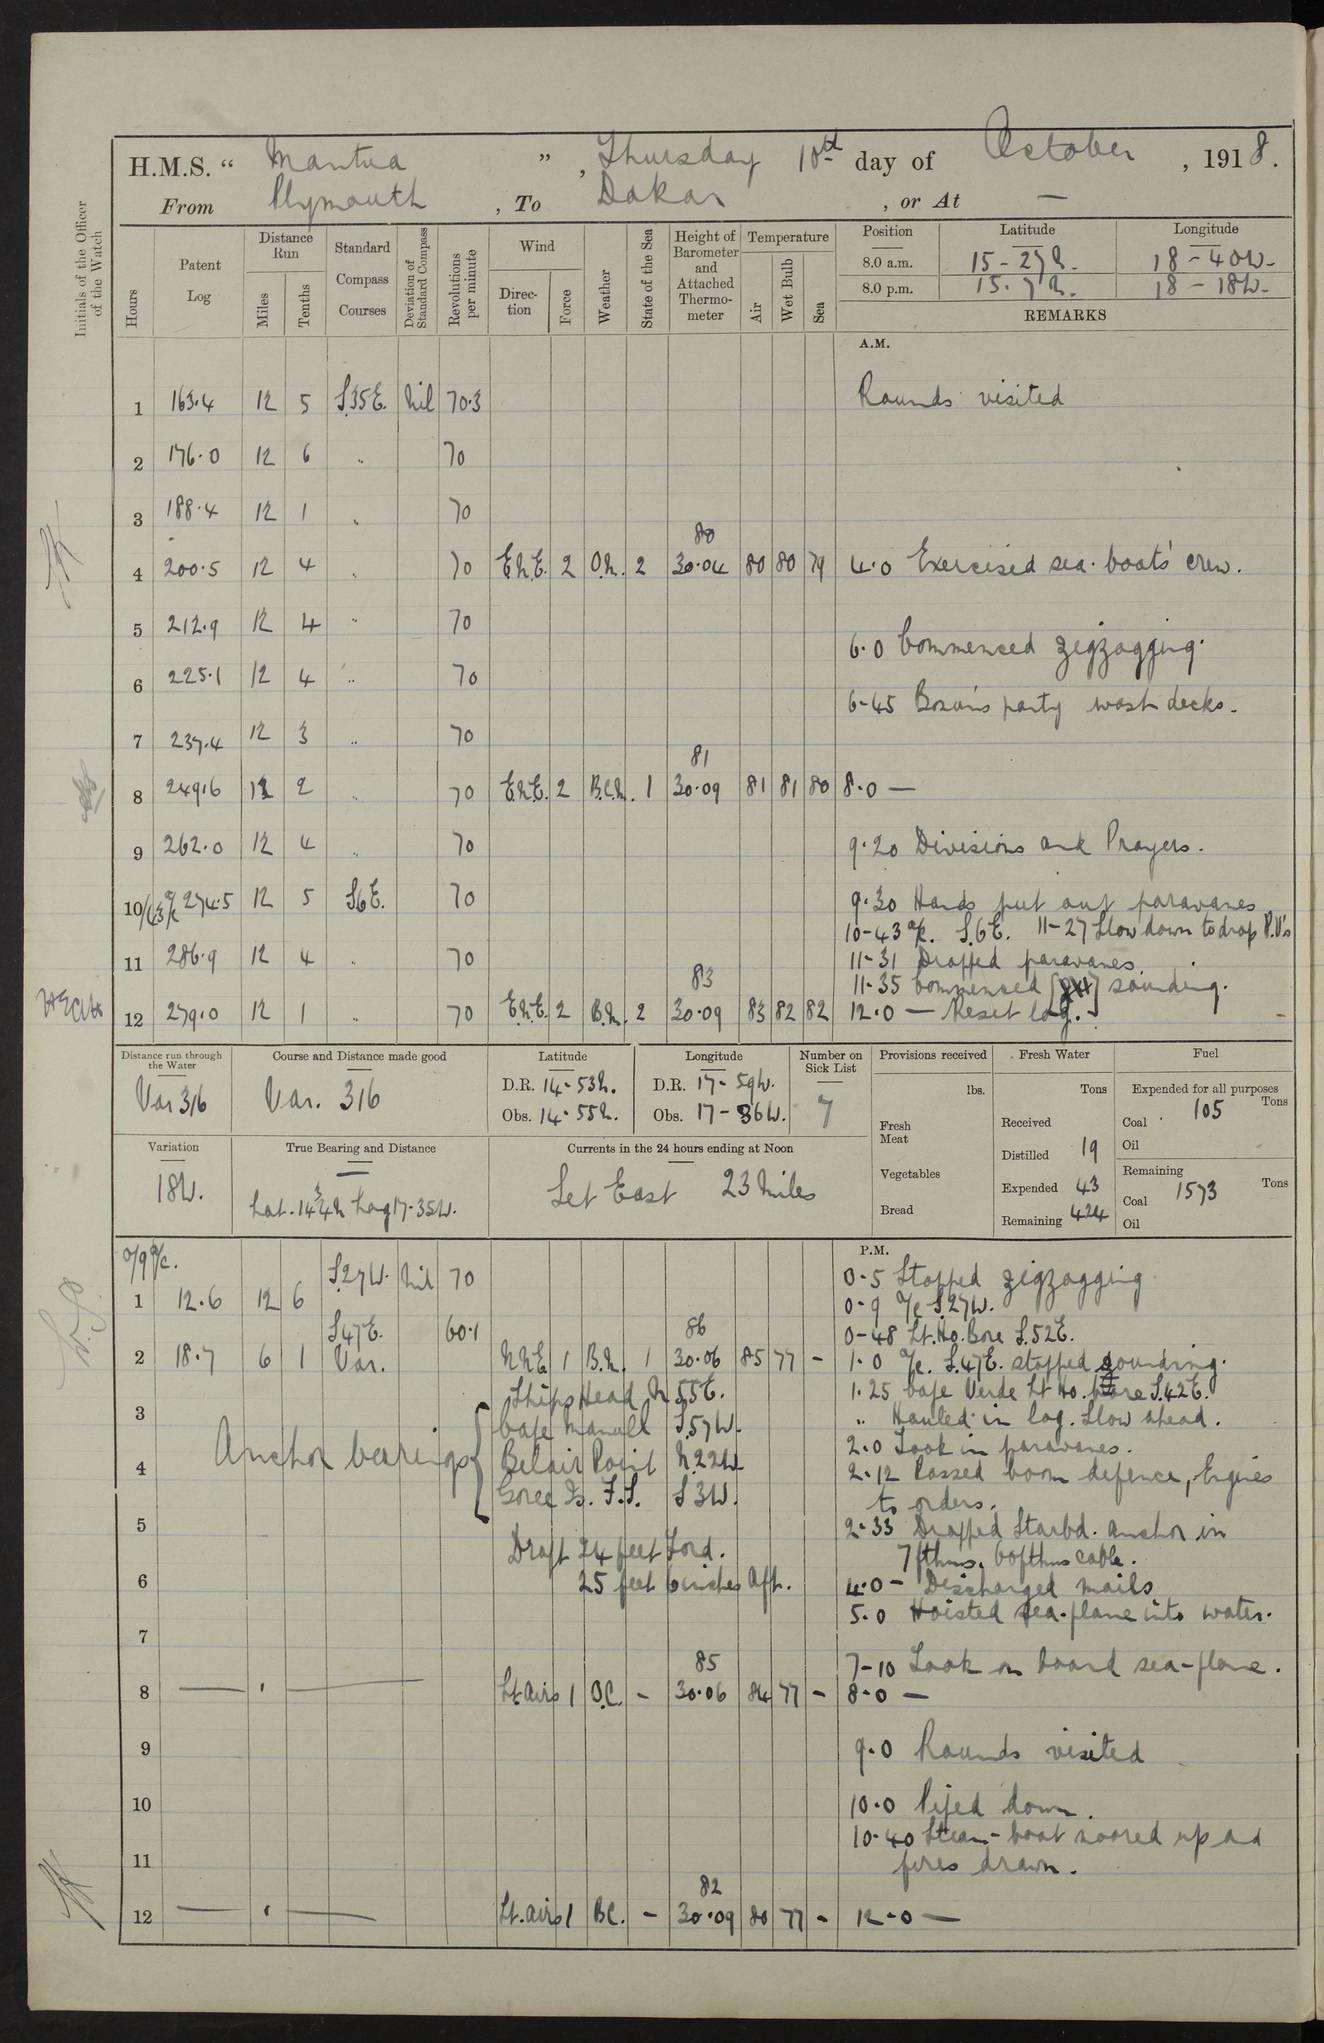 H.M.S. " Mantua ", Thursday 10th day of October, 1918.
From Plymouth, To Dakar, or At —
Initials of the Officer of the Watch
Hours Patent Log Distance Run Miles Tenths Standard Compass Courses Deviation of Standard Compass Revolutions per minute Wind Direction Force Weather State of the Sea Height of Barometer and Attached Thermometer Temperature Air Wet Bulb Sea
Position Latitude Longitude
8.0 a.m. 15-27N. 18-40W.
8.0 p.m. 15.7N. 18-18W.
REMARKS
A.M.
1 163.4 12 5 S.35E. Nil 70.3 Rounds visited
2 176.0 12 6 " 70
3 188.4 12 1 " 70
80
4 200.5 12 4 " 70 E.N.E. 2 O.M. 2 30.04 80 80 79 4.0 Exercised sea-boats' crew.
5 212.9 12 4 " 70
6.0 Commenced zigzagging.
6 225.1 12 4 " 70
6-45 Bosun's party wash decks.
7 237.4 12 3 " 70
81
8 249.6 12 2 " 70 E.N.E. 2 B.C.M. 1 30.09 81 81 80 8.0 —
9 262.0 12 4 " 70 9.20 Divisions and Prayers.
10/43 a/c 274.5 12 5 S6E. 70 9.30 Hands put out paravanes
10-43 a/c. S.6E. 11-27 Slow down to drop P.V's
11 286.9 12 4 " 70 11-31 Dropped paravanes.
83
11-35 Commenced sounding.
12 279.0 12 1 " 70 E.N.E. 2 B.M. 2 30.09 83 82 82 12.0 — Reset log.
Distance run through the Water Course and Distance made good Latitude Longitude Number on Sick List Provisions received Fresh Water Fuel
Var 316 Var. 316 D.R. 14-53N. D.R. 17-59W. 7 lbs. Tons Expended for all purposes
Obs. 14-55N. Obs. 17-36W. Fresh Meat Received Coal 105 Tons
Oil
Variation True Bearing and Distance Currents in the 24 hours ending at Noon Distilled 19
18W. — Set East 23 Miles Vegetables Expended 43 Remaining
Lat. 14¾N Long 17-35W. Coal 1573 Tons
Bread Remaining 424 Oil
P.M.
0/9 a/c. S27W. Nil 70 0-5 Stopped zigzagging
1 12.6 12 6 0-9 a/c S.27W.
S47E. 60.1 86 0-48 Lt. Ho. Bore S.52E.
2 18.7 6 1 Var. N.N.E 1 B.M. 1 30.06 85 77 - 1.0 a/c. S.47E. stopped sounding.
Ships Head N 55E. 1.25 Cape Verde Lt Ho. bore S.42E.
3 Cape Manuel S.57W. " Hauled in log. Slow ahead.
Anchor bearings
4 Belair Point N.22W. 2.0 Took in paravanes.
2.12 Passed boom defence, Engines
Goree Is. F.S. S 3W. to orders.
5 2.33 Dropped Starbd. anchor in
Draft 24 feet Ford. 7 fthms. 60 fthms cable.
6 25 feet 6 inches Aft. 4.0 - Discharged mails
5.0 Hoisted sea-plane into water.
7
85 7-10 Took on board sea-plane.
8 Lt airs 1 O.C. - 30.06 84 77 - 8.0 —
9 9.0 Rounds visited
10 10.0 Piped down.
10.40 Steam-boat moored up and
11 fires drawn.
82
12 Lt. airs 1 BC. - 30.09 80 77 - 12-0 —